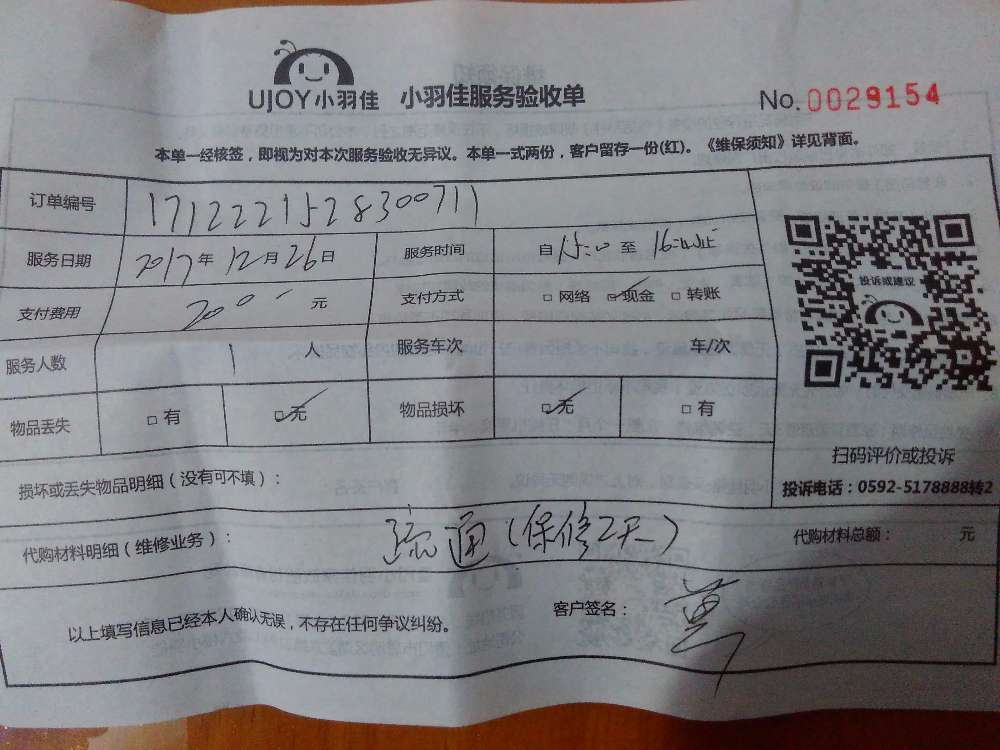 UJOY小羽佳 小羽佳服务验收单 No.0029154
本单一经核签，即视为对本次服务验收无异议。本单一式两份，客户留存一份(红)。《维保须知》详见背面。
订单编号 1712221528300711
服务日期 2017年12月26日 服务时间 自15:00至16:00止
支付费用 200 元 支付方式 □网络 ☑现金 □转账
投诉或建议
服务人数 1 人 服务车次 车/次
物品丢失 □有 ☑无 物品损坏 ☑无 □有
扫码评价或投诉
损坏或丢失物品明细（没有可不填）： 投诉电话：0592-5178888转2
代购材料明细（维修业务）： 疏通(保修2天) 代购材料总额： 元
以上填写信息已经本人确认无误，不存在任何争议纠纷。 客户签名：